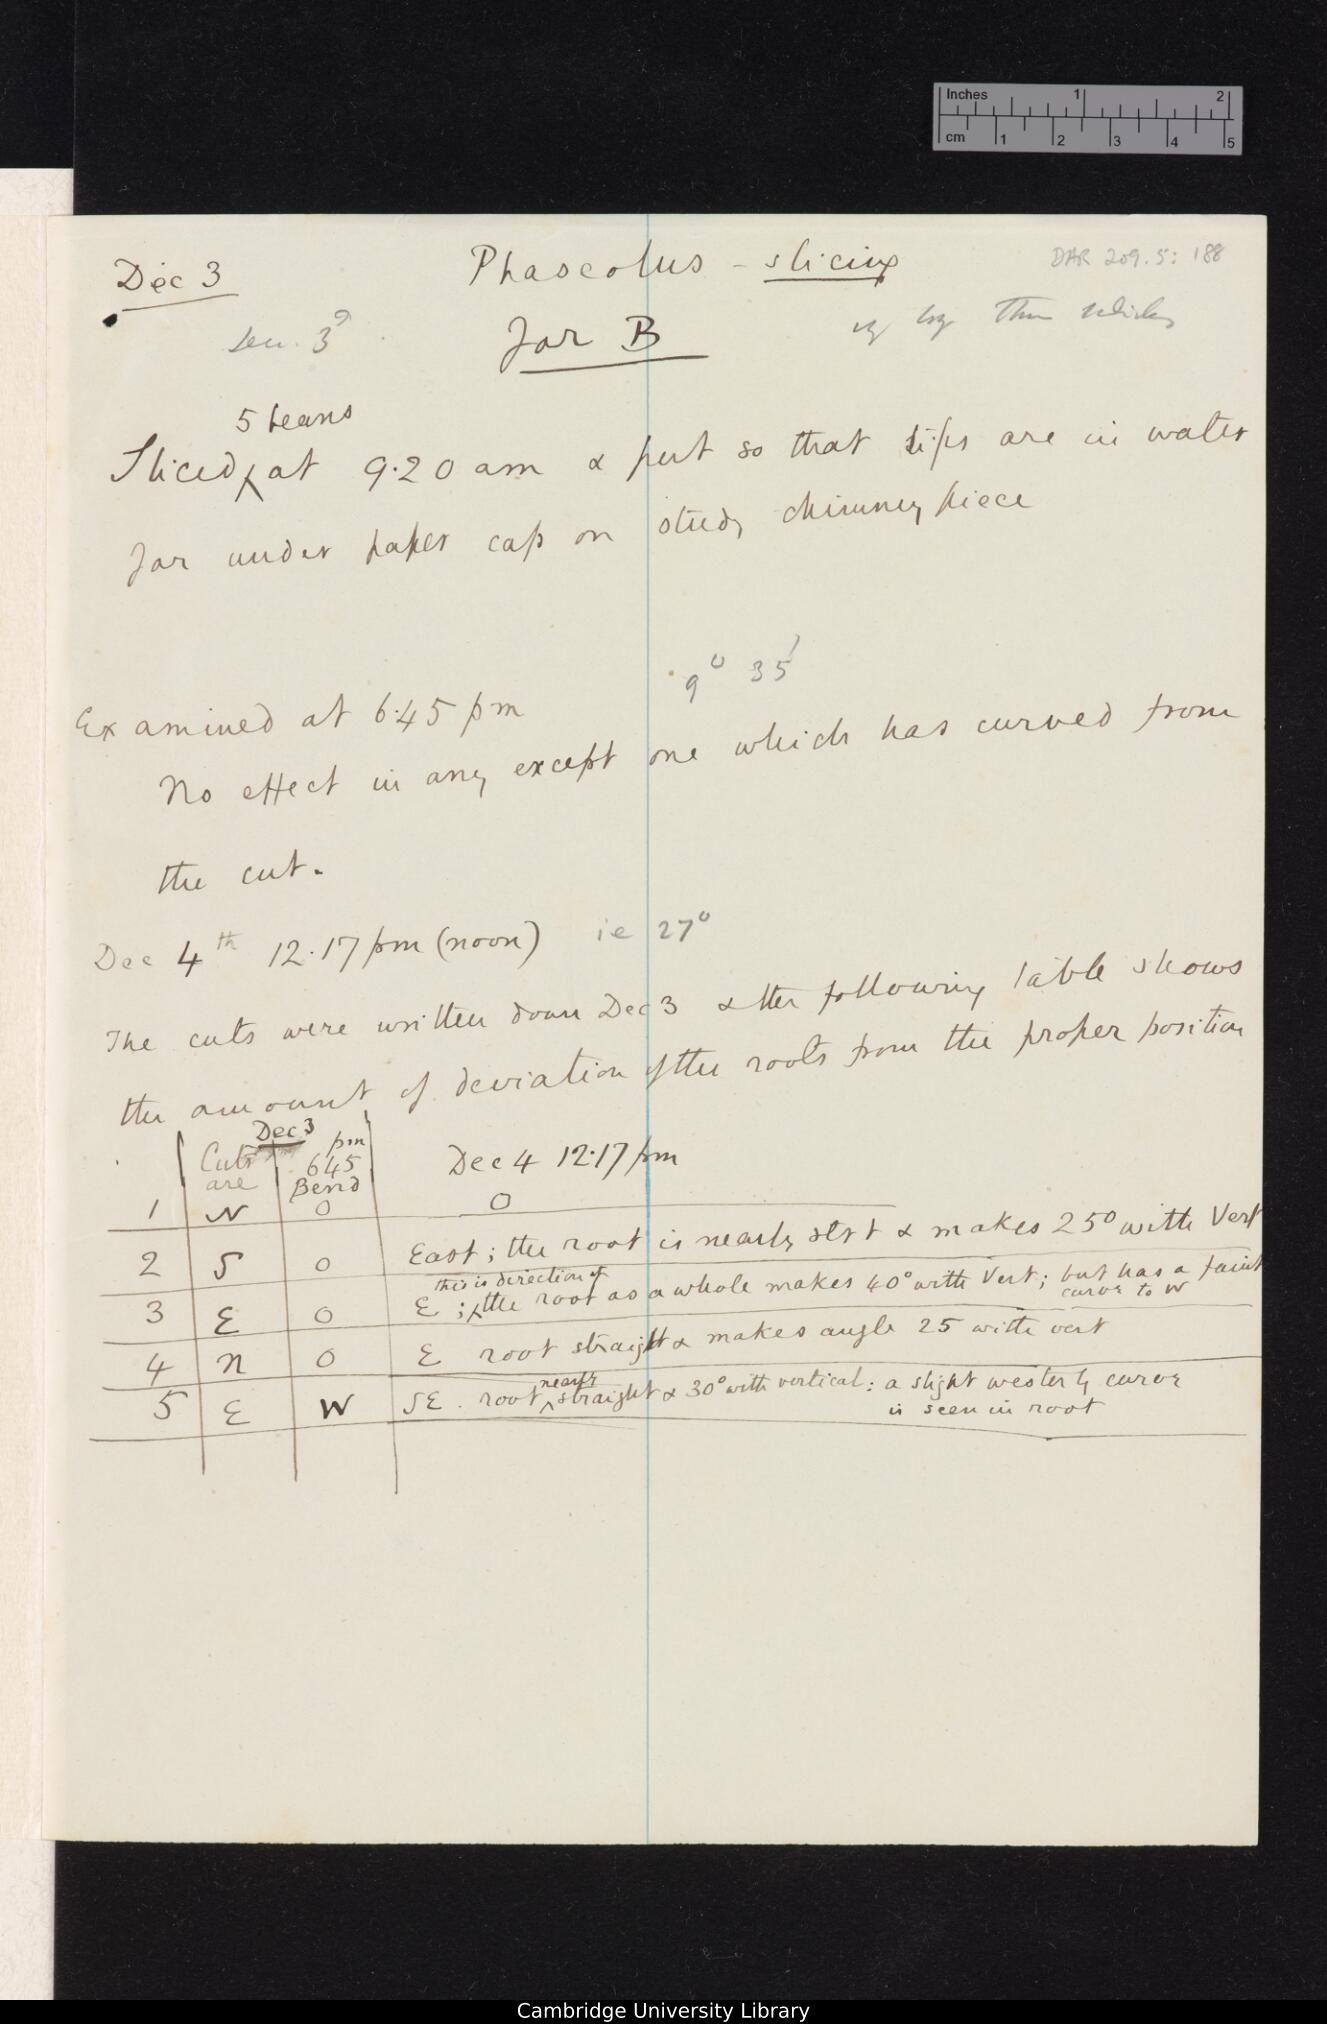 Inches 1 2
cm 1 2 3 4 5
Dec 3
Phaseolus - slicing
DAR 209.5: 188
Jar B
Dec. 3ᵈ
5 beans
Sliced at 9.20 am & put so that tips are in water
Jar under paper cap on study chimney piece
9° 35'
Examined at 6.45 pm
No effect in any except one which has curved from
the cut.
Dec 4th 12.17 pm (noon) ie 27°
The cuts were written down Dec 3 & the following table shows
the amount of deviation of the roots from the proper position
Dec 3
Cuts are
pm 645 Bend
Dec 4 12.17 pm
1 N 0 0
2 S 0 East; the root is nearly strt & makes 25° with Vert
this is direction of
3 E 0 E; the root as a whole makes 40° with Vert; but has a faint
curve to W
4 N 0 E root straight & makes angle 25 with vert
nearly
5 E W SE. root straight & 30° with vertical: a slight westerly curve
is seen in root
Cambridge University Library